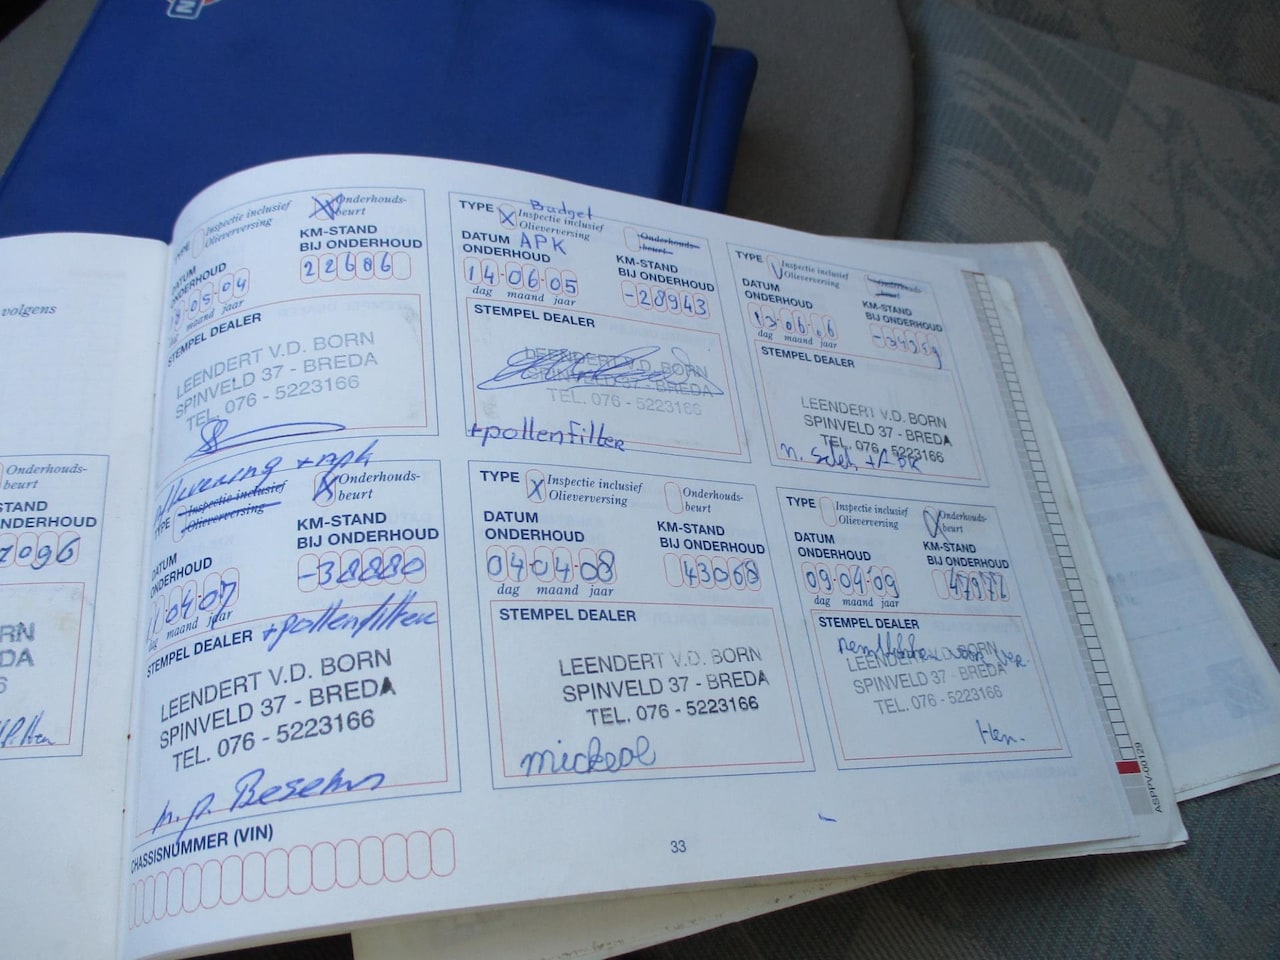 volgens
Onderhouds-
beurt
ONDERHOUD
7096
TYPE
Inspectie inclusief
Olieverversing
Onderhouds-
beurt
DATUM
ONDERHOUD
KM-STAND
BIJ ONDERHOUD
05 04
22686
dag maand jaar
STEMPEL DEALER
LEENDERT V.D. BORN
SPINVELD 37 - BREDA
TEL. 076 - 5223166
Budget
TYPE
X
Inspectie inclusief
Olieverversing
Onderhouds-
beurt
DATUM APK
ONDERHOUD
KM-STAND
BIJ ONDERHOUD
14 06 05
-28943
dag maand jaar
STEMPEL DEALER
LEENDERT V.D. BORN
SPINVELD 37 - BREDA
TEL. 076 - 5223166
+pollenfilter
TYPE
Inspectie inclusief
Olieverversing
DATUM
ONDERHOUD
KM-STAND
BIJ ONDERHOUD
13 06 06
dag maand jaar
STEMPEL DEALER
LEENDERT V.D. BORN
SPINVELD 37 - BREDA
TEL. 076 - 5223166
+apk
TYPE
Inspectie inclusief
Olieverversing
X
Onderhouds-
beurt
DATUM
ONDERHOUD
KM-STAND
BIJ ONDERHOUD
04 07
-38880
dag maand jaar
STEMPEL DEALER +pollenfilter
LEENDERT V.D. BORN
SPINVELD 37 - BREDA
TEL. 076 - 5223166
TYPE
X
Inspectie inclusief
Olieverversing
Onderhouds-
beurt
DATUM
ONDERHOUD
KM-STAND
BIJ ONDERHOUD
04 04 08
43068
dag maand jaar
STEMPEL DEALER
LEENDERT V.D. BORN
SPINVELD 37 - BREDA
TEL. 076 - 5223166
TYPE
Inspectie inclusief
Olieverversing
X
Onderhouds-
beurt
DATUM
ONDERHOUD
KM-STAND
BIJ ONDERHOUD
09 04 09
dag maand jaar
STEMPEL DEALER
LEENDERT V.D. BORN
SPINVELD 37 - BREDA
TEL. 076 - 5223166
CHASSISNUMMER (VIN)
33
ASPPV-00129